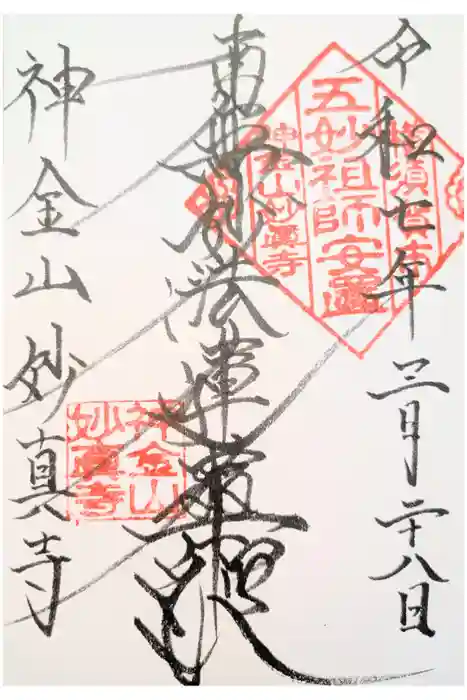 令和七年三月二十八日
南無妙法蓮華経
神金山妙真寺
横須賀市
五妙祖師安
神金山妙眞寺
神金山
妙眞寺